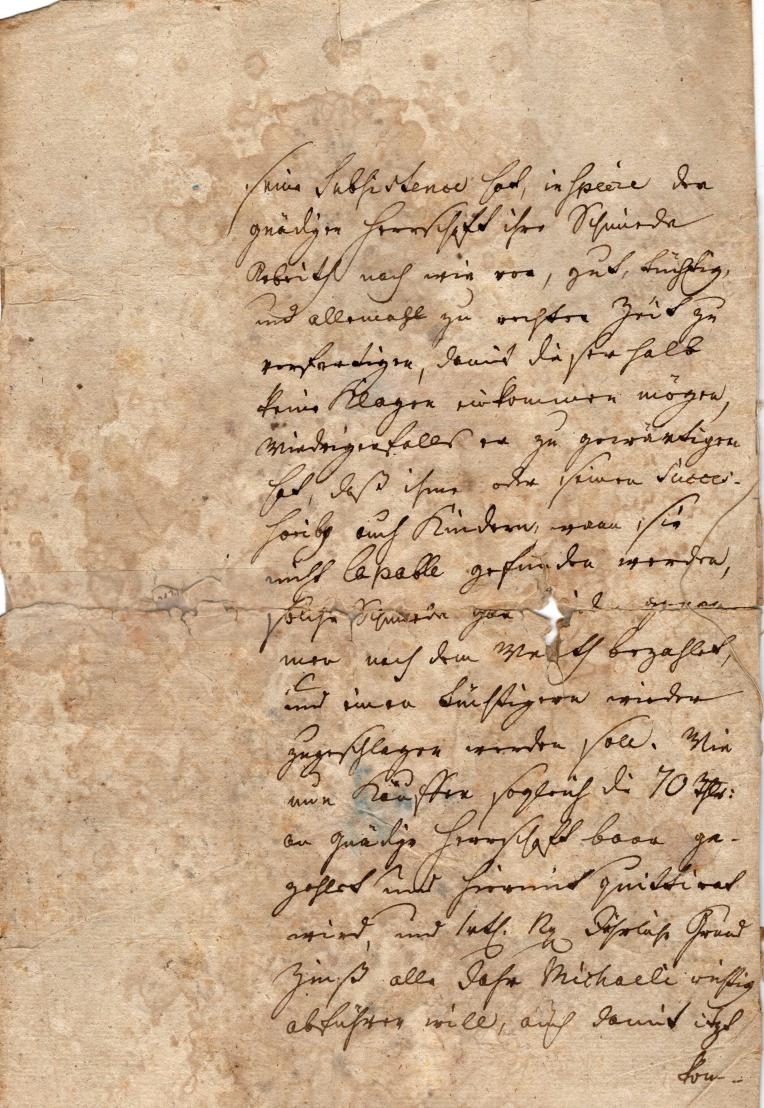 seine Subsistence hat, in specie der
gnädigen Herrschaft ihre Schmiede
Arbeith nach wie vor, gut, tüchtig,
und allemahl zu rechter Zeit zu
verfertigen, damit dieserhalb
keine Klagen einkommen mögen,
Wiedrigenfalls er zu gewärtigen
hat, daß ihme oder seinen Succes-
soribg auch Kindern, wann sie
nicht Capable gefunden werden,
solche Schmiede
men nach dem Werth bezahlet,
und einen tüchtigern wieder
zugeschlagen werden soll. Wie
nun Käuffer sogleich die 70 Thlr:
an gnädige Herrschaft baar ge-
zahlet und hiermit quittiret
wird, und Jährlich Grund
Zinß alle Jahr Michaeli richtig
abführen will, auch damit itzt
kom-